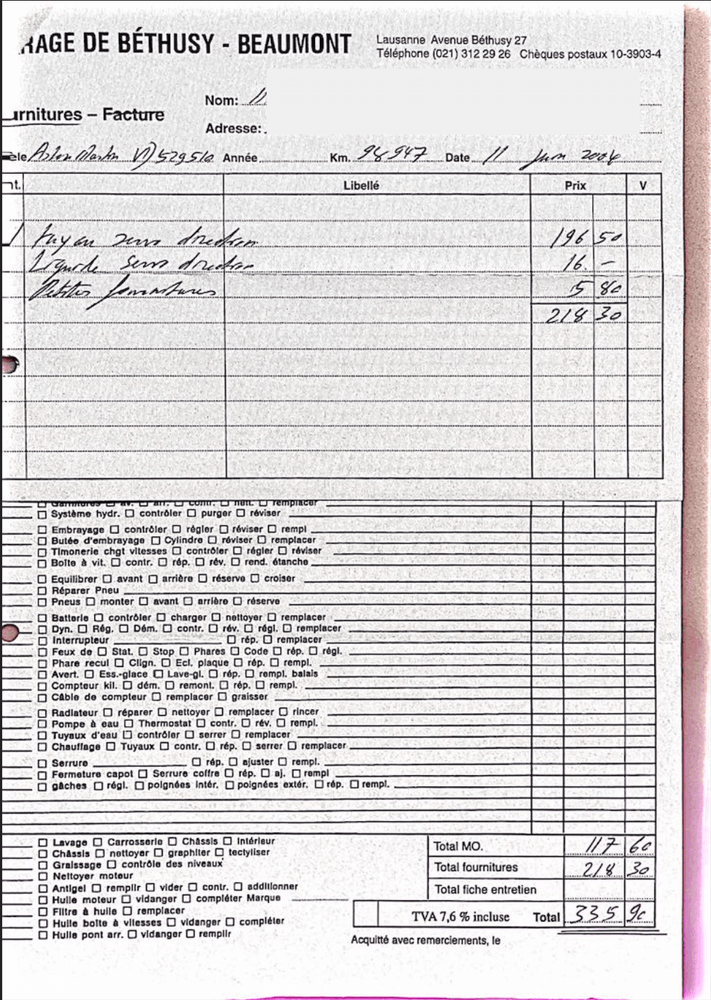 RAGE DE BÉTHUSY - BEAUMONT
Lausanne Avenue Béthusy 27
Téléphone (021) 312 29 26 Chèques postaux 10-3903-4
Nom:
urnitures – Facture
Adresse:
èle Aston Martin VD 529510 Année Km. 98947 Date 11 Juin 2004
nt. Libellé Prix V
1 tuyau servo direction 196 50
Liquide servo direction 16. –
Petites fournitures 5 80
218 30
Garnitures ☐ av. ☐ arr. ☐ contr. ☐ nett. ☐ remplacer
☐ Système hydr. ☐ contrôler ☐ purger ☐ réviser
☐ Embrayage ☐ contrôler ☐ régler ☐ réviser ☐ rempl
☐ Butée d'embrayage ☐ Cylindre ☐ réviser ☐ remplacer
☐ Timonerie chgt vitesses ☐ contrôler ☐ régler ☐ réviser
☐ Boîte à vit. ☐ contr. ☐ rép. ☐ rév. ☐ rend. étanche
☐ Equilibrer ☐ avant ☐ arrière ☐ réserve ☐ croiser
☐ Réparer Pneu
☐ Pneus ☐ monter ☐ avant ☐ arrière ☐ réserve
☐ Batterie ☐ contrôler ☐ charger ☐ nettoyer ☐ remplacer
☐ Dyn. ☐ Rég. ☐ Dém. ☐ contr. ☐ rév. ☐ régl. ☐ remplacer
☐ Interrupteur ☐ rép. ☐ remplacer
☐ Feux de ☐ Stat. ☐ Stop ☐ Phares ☐ Code ☐ rép. ☐ régl.
☐ Phare recul ☐ Clign. ☐ Ecl. plaque ☐ rép. ☐ rempl.
☐ Avert. ☐ Ess.-glace ☐ Lave-gl. ☐ rép. ☐ rempl. balais
☐ Compteur kil. ☐ dém. ☐ remont. ☐ rép. ☐ rempl.
☐ Câble de compteur ☐ remplacer ☐ graisser
☐ Radiateur ☐ réparer ☐ nettoyer ☐ remplacer ☐ rincer
☐ Pompe à eau ☐ Thermostat ☐ contr. ☐ rév. ☐ rempl.
☐ Tuyaux d'eau ☐ contrôler ☐ serrer ☐ remplacer
☐ Chauffage ☐ Tuyaux ☐ contr. ☐ rép. ☐ serrer ☐ remplacer
☐ Serrure ☐ rép. ☐ ajuster ☐ rempl.
☐ Fermeture capot ☐ Serrure coffre ☐ rép. ☐ aj. ☐ rempl
☐ gâches ☐ régl. ☐ poignées intér. ☐ poignées extér. ☐ rép. ☐ rempl.
☐ Lavage ☐ Carrosserie ☐ Châssis ☐ Intérieur
☐ Châssis ☐ nettoyer ☐ graphiter ☐ tectyliser
☐ Graissage ☐ contrôle des niveaux
☐ Nettoyer moteur
☐ Antigel ☐ remplir ☐ vider ☐ contr. ☐ additionner
☐ Huile moteur ☐ vidanger ☐ compléter Marque
☐ Filtre à huile ☐ remplacer
☐ Huile boîte à vitesses ☐ vidanger ☐ compléter
☐ Huile pont arr. ☐ vidanger ☐ remplir
Total MO. 117 60
Total fournitures 218 30
Total fiche entretien
TVA 7,6 % incluse Total 335 90
Acquitté avec remerciements, le